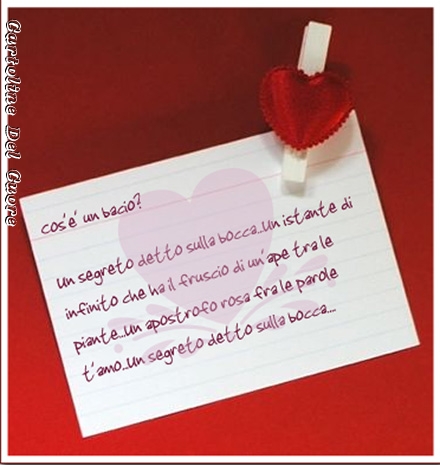 Cartoline Del Cuore
cos'e' un bacio?
un segreto detto sulla bocca..Un istante di
infinito che ha il fruscio di un'ape tra le
piante...un apostrofo rosa fra le parole
t'amo..un segreto detto sulla bocca....